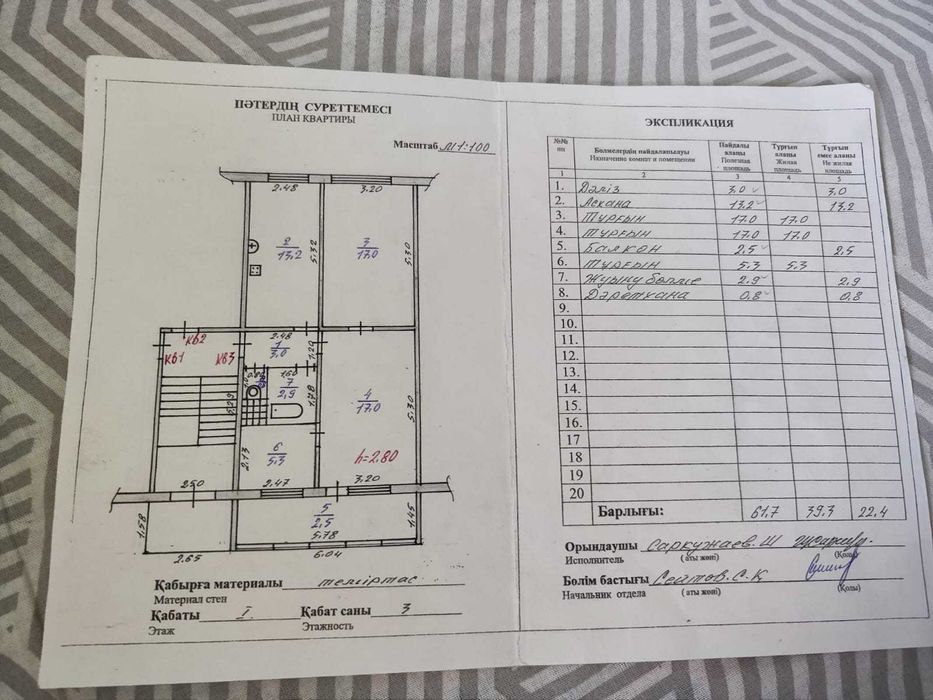 ПӘТЕРДІҢ СУРЕТТЕМЕСІ
ПЛАН КВАРТИРЫ
Масштаб М1:100
2.48
3.20
2
13,2
5.32
3
17.0
5.30
кв1
кв2
кв3
2.48
1
3,0
1.20
1.60
7
2,9
1.78
5.29
4
17.0
5.30
6
5.3
2.13
h=2.80
250
2.47
3.20
5
2,5
5.78
1.58
1.45
2.65
6.04
Қабырға материалы теміртас
Материал стен
Қабаты I Қабат саны 3
Этаж Этажность
ЭКСПЛИКАЦИЯ
№№ пп Бөлмелердің пайдаланылуы Назначение комнат и помещении Пайдалы аланы Полезная площадь Тұрғын аланы Жилая площадь Тұрғын емес аланы Не жилая площадь
1 2 3 4 5
1. Дәліз 3,0 3,0
2. Асхана 13,2 13,2
3. Тұрғын 17.0 17.0
4. Тұрғын 17.0 17.0
5. Балкон 2,5 2,5
6. Тұрғын 5.3 5.3
7. Жуыну бөлме 2.9 2,9
8. Дәретхана 0,8 0,8
9.
10.
11.
12.
13.
14.
15.
16.
17
18
19
20
Барлығы: 61,7 39.3 22.4
Орындаушы Саркужаев.Ш
Исполнитель (аты жөні) (Қолы)
Бөлім бастығы Сейтов.С.Қ
Начальник отдела (аты жөні) (Қолы)